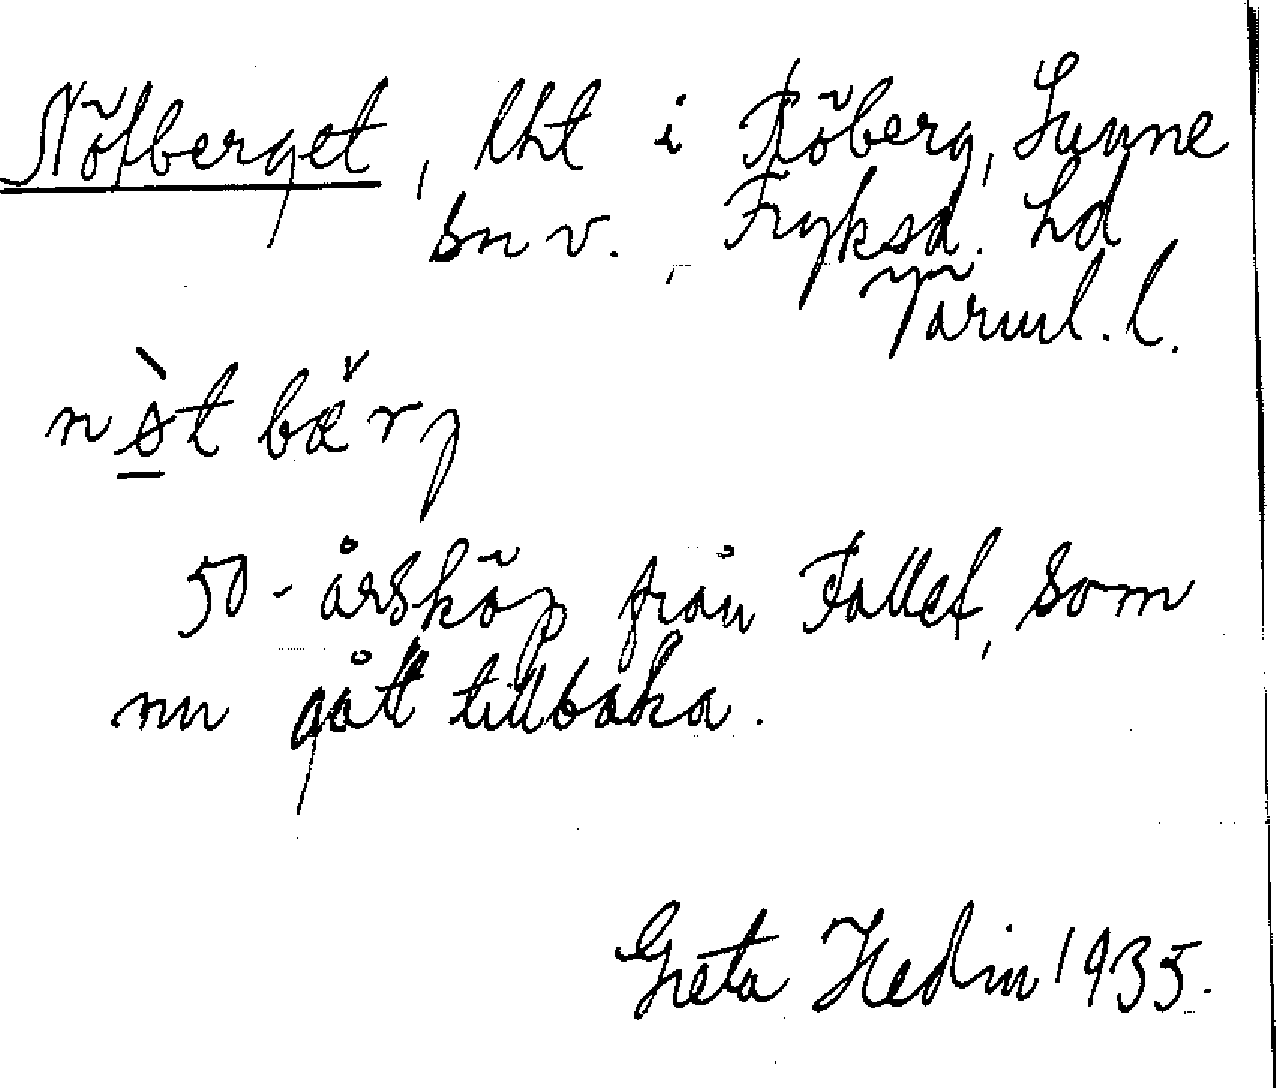 Nötberget, lht i Röberg, Sunne
sn v. Fryksd. hd
Värml. l.
nø̀t bæ̌rj
50-årsköp från Fallet, som
nu gått tillbaka.
Greta Hedin 1935.